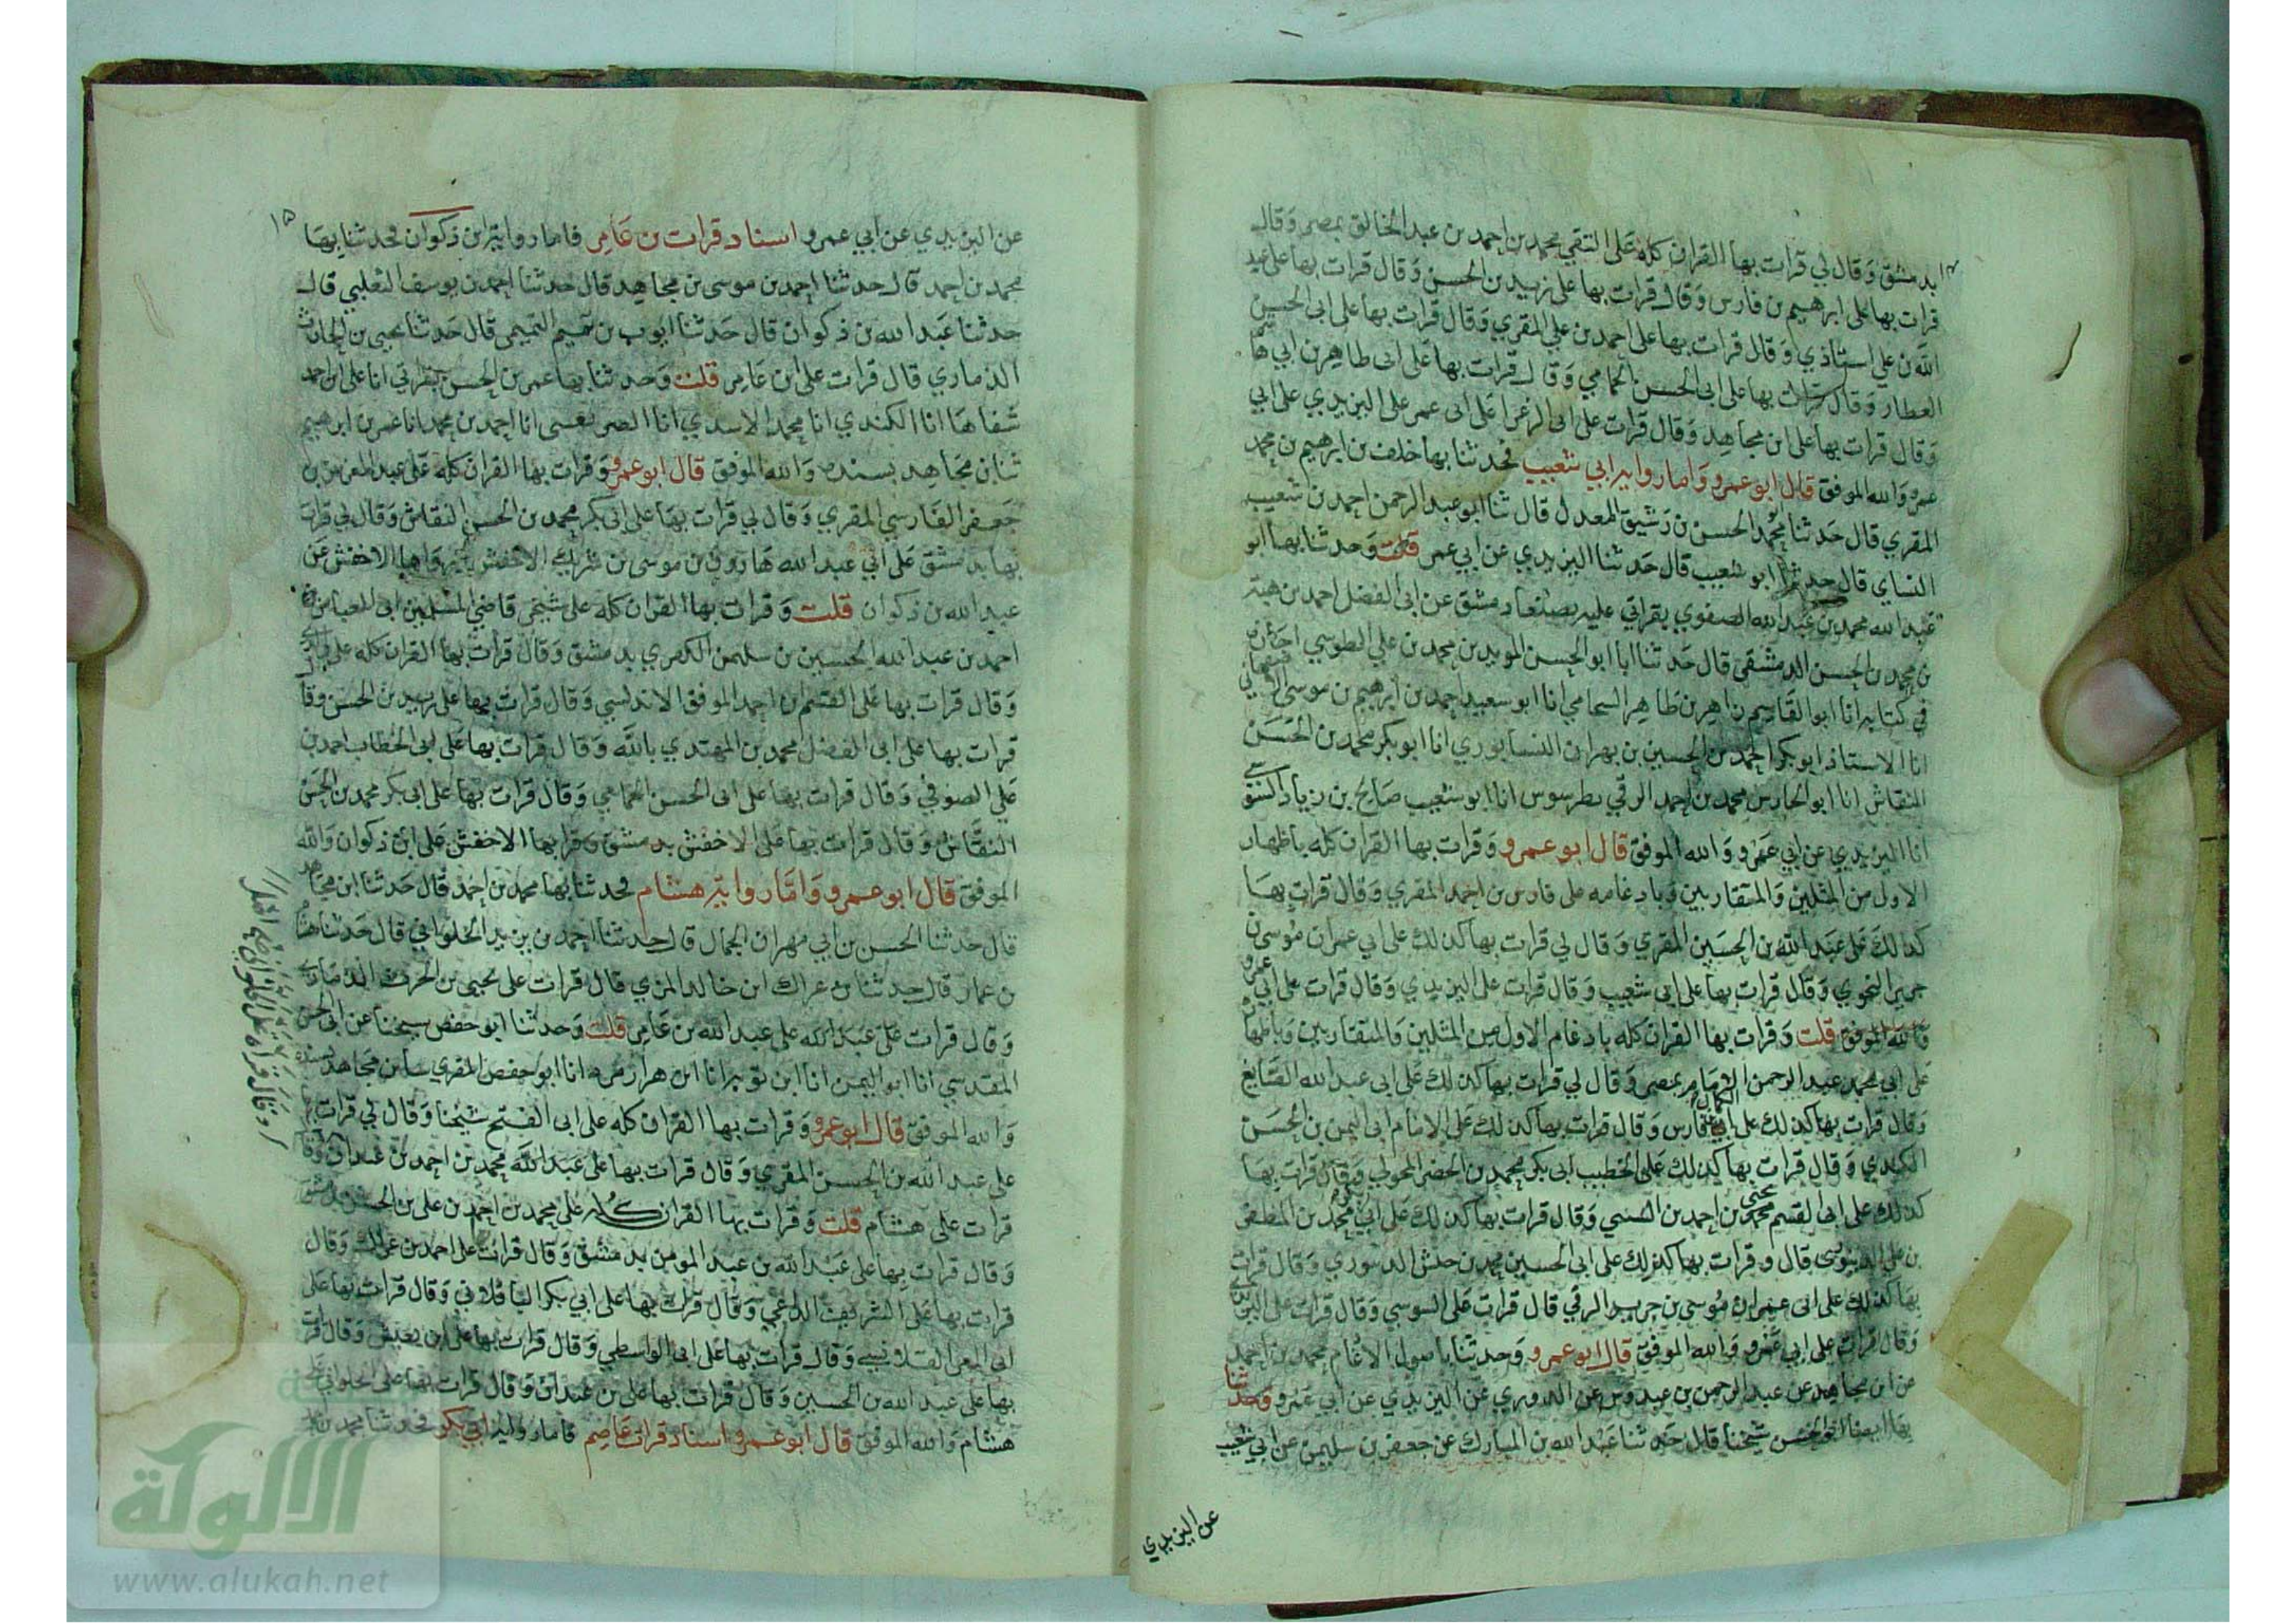 بدمشق وقال لي قرات بها القران كله على التقي محمد بن احمد بن عبد الخالق بمصر وقال
قرات بها على ابرهيم بن فارس وقال قرات بها على زيد بن الحسن وقال قرات بها على عبد
الله بن علي استاذي وقال قرات بها على احمد بن علي المقري وقال قرات بها على ابى الحسين
العطار وقال قرات بها على ابى الحسن الحمامي وقال قرات بها على ابى طاهر بن ابي هاشم
وقال قرات بها على ابن مجاهد وقال قرات على ابى الزعرا على ابى عمر على اليزيدي على ابي
عمرو والله الموفق قال ابو عمرو واما رواية ابي شعيب فحدثنا بها خلف بن ابرهيم بن محمد
المقري قال حدثنا محمد الحسن بن رشيق المعدل قال ثنا ابو عبد الرحمن احمد بن شعيب
النساي قال حدثنا ابو شعيب قال حدثنا اليزيدي عن ابي عمر قلت وحدثنا بها ابو
عبد الله محمد بن عبد الله الصفوي بقراتي عليه بصنعا دمشق عن ابى الفضل احمد بن هبة
بن محمد بن الحسن الدمشقى قال حدثنا ابا ابو الحسن المويد بن محمد بن علي الطوسي
في كتابه انا ابو القاسم زاهر بن طاهر السحامي انا ابو سعيد احمد بن ابرهيم بن موسى الاصبهاني
انا الاستاذ ابو بكر احمد بن الحسين بن بهران النيسابوري انا ابو بكر محمد بن الحسن
النقاش انا ابو الحارس محمد بن احمد الرقي بطرسوس انا ابو شعيب صالح بن زياد السوسي
انا اليزيدي عن ابي عمرو والله الموفق قال ابو عمرو وقرات بها القران كله باظهار
الاول من المثلين والمتقاربين وبادغامه على فارس بن احمد المقري وقال قرات بها
كذلك على عبد الله بن الحسين المقري وقال لي قرات بها كذلك على ابي عمران موسى بن
جرير النحوي وقال قرات بها على ابى شعيب وقال قرات على اليزيدي وقال قرات على ابي عمرو
والله الموفق قلت وقرات بها القران كله بادغام الاول من المثلين والمتقاربين وباظهاره
على ابي محمد عبد الرحمن بمصر وقال لي قرات بها كذلك على ابى عبد الله الصايغ
وقال قرات بها كذلك على الكمال بن فارس وقال قرات بها كذلك على الامام ابى اليمن بن الحسن
الكندي وقال قرات بها كذلك على الخطيب ابى بكر محمد بن الخضر المحولي وقال قرات بها
كذلك على ابى القسم يحيى بن احمد بن السيبي وقال قرات بها كذلك على ابى محمد بن المظفر
بن علي الدينوري قال وقرات بها كذلك على ابى الحسين محمد بن حبش الدينوري وقال قرات
بها كذلك على ابى عمران موسى بن جرير الرقي قال قرات على السوسي وقال قرات على اليزيدي
وقال قرات على ابي عمرو والله الموفق قال ابو عمرو وحدثنا باصول الادغام محمد بن احمد
عن ابن مجاهد عن عبد الرحمن بن عبدوس عن الدوري عن اليزيدي عن ابي عمرو وحدثنا
بها ايضا ابو الحسن شيخنا قال حدثنا عبد الله بن المبارك عن جعفر بن سليمن عن ابي شعيب
عن اليزيدي
١٥
عن اليزيدي عن ابي عمرو اسناد قرات بن عامر فاما رواية ابن ذكوان فحدثنا بها
محمد بن احمد قال حدثنا احمد بن موسى بن مجاهد قال حدثنا احمد بن يوسف التغلبي قال
حدثنا عبد الله بن ذكوان قال حدثنا ايوب بن تميم التميمي قال حدثنا يحيى بن الحارث
الذماري قال قرات على ابن عامر قلت وحدثنا بها عمر بن الحسن بقراتي انا على بن احمد
شفاها انا الكندي انا محمد الاسدي انا احمد بن محمد انا عمر بن ابرهيم
ثنا بن مجاهد بسنده والله الموفق قال ابو عمرو وقرات بها القران كله على عبد العزيز بن
جعفر الفارسي المقري وقال لي قرات بها على ابى بكر محمد بن الحسن النقاش وقال لي قرات
بها بدمشق على ابي عبد الله هارون بن موسى بن شريك الاخفش ورواها الاخفش عن
عبد الله بن ذكوان قلت وقرات بها القران كله على شيخي قاضي المسلمين ابى العباس
احمد بن عبد الله الحسين بن سليمن الكفري بدمشق وقال قرات بها القران كله على
وقال قرات بها على القسم بن احمد الموفق الاندلسي وقال قرات بها على زيد بن الحسن وقال
قرات بها على ابى الفضل محمد بن المهتدي بالله وقال قرات بها على ابى الخطاب احمد بن
علي الصوفي وقال قرات بها على ابى الحسن الحمامي وقال قرات بها على ابى بكر محمد بن الحسن
النقاش وقال قرات بها على الاخفش بدمشق وقرا بها الاخفش على ابن ذكوان والله
الموفق قال ابو عمرو واما رواية هشام فحدثنا بها محمد بن احمد قال حدثنا ابن مجاهد
قال حدثنا الحسن بن ابي مهران الجمال قال حدثنا احمد بن يزيد الحلواني قال حدثنا هشام
بن عمار قال حدثنا عراك ابن خالد المزي قال قرات على يحيى بن الحرث الذماري
وقال قرات على عبد الله على عبد الله بن عامر قلت وحدثنا ابو حفص شيخنا عن ابى الحسن
المقدسي انا ابو اليمن انا ابن توبه انا ابن هزارمرد انا ابو حفص المقري ثنا بن مجاهد بسنده
والله الموفق قال ابو عمرو وقرات بها القران كله على ابى الفتح شيخنا وقال لي قرات
على عبد الله بن الحسن المقري وقال قرات بها على عبد الله محمد بن احمد بن عبدان وقال
قرات على هشام قلت وقرات بها القران كله على محمد بن احمد بن على بن الحسن بدمشق
وقال قرات بها على عبد الله بن عبد المومن بدمشق وقال قرات على احمد بن غزال وقال
قرات بها على الشريف الداعي وقال قرات بها على ابي بكر الباقلاني وقال قرات بها على
ابى العز القلانسي وقال قرات بها على ابى الواسطي وقال قرات بها على ابن يعيش وقال قرات
بها على عبد الله بن الحسين وقال قرات بها على بن عبدان وقال قرات بها على الحلواني على
هشام والله الموفق قال ابو عمرو اسناد قرات عاصم فاما رواية ابي بكر فحدثنا محمد بن
الالوكة
www.alukah.net